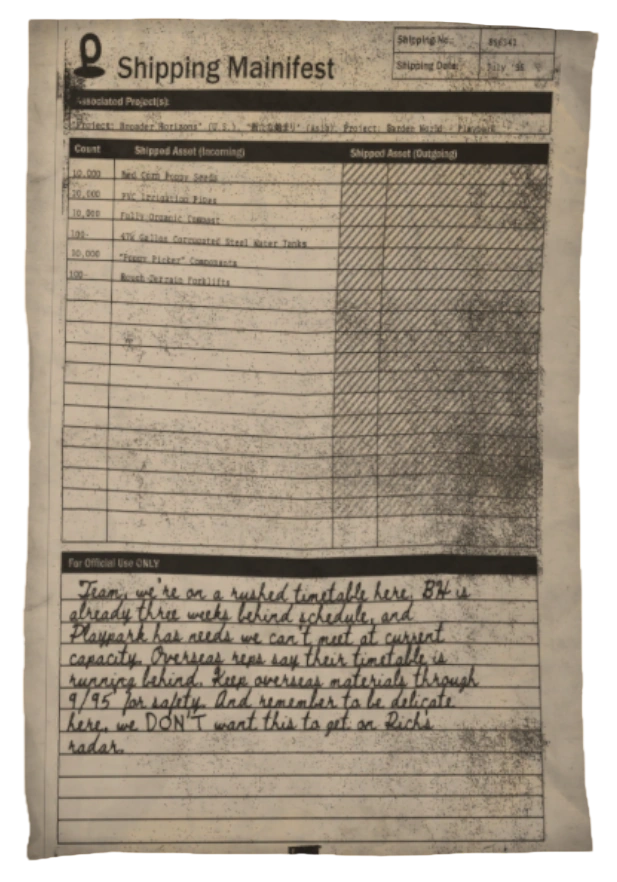 Shipping Mainifest
Shipping No.:
Shipping Date:
July '95
Associated Project(s):
Project: Broader Horizons" (U.S.), (Asia), Project: Garden World - Playpark
Count Shipped Asset (Incoming) Shipped Asset (Outgoing)
10,000 Red Corn Poppy Seeds
PVC Irrigation Pipes
10,000 Fully Organic Compost
100- 47K Gallon Corrugated Steel Water Tanks
"Poppy Picker" Components
100- Rough-Terrain Forklifts
For Official Use ONLY
Team, we're on a rushed timetable here, BH is
already three weeks behind schedule, and
Playpark has needs we can't meet at current
capacity. Overseas reps say their timetable is
running behind. Keep overseas materials through
9/95 for safety. And remember to be delicate
here, we DON'T want this to get on Rich's
radar.